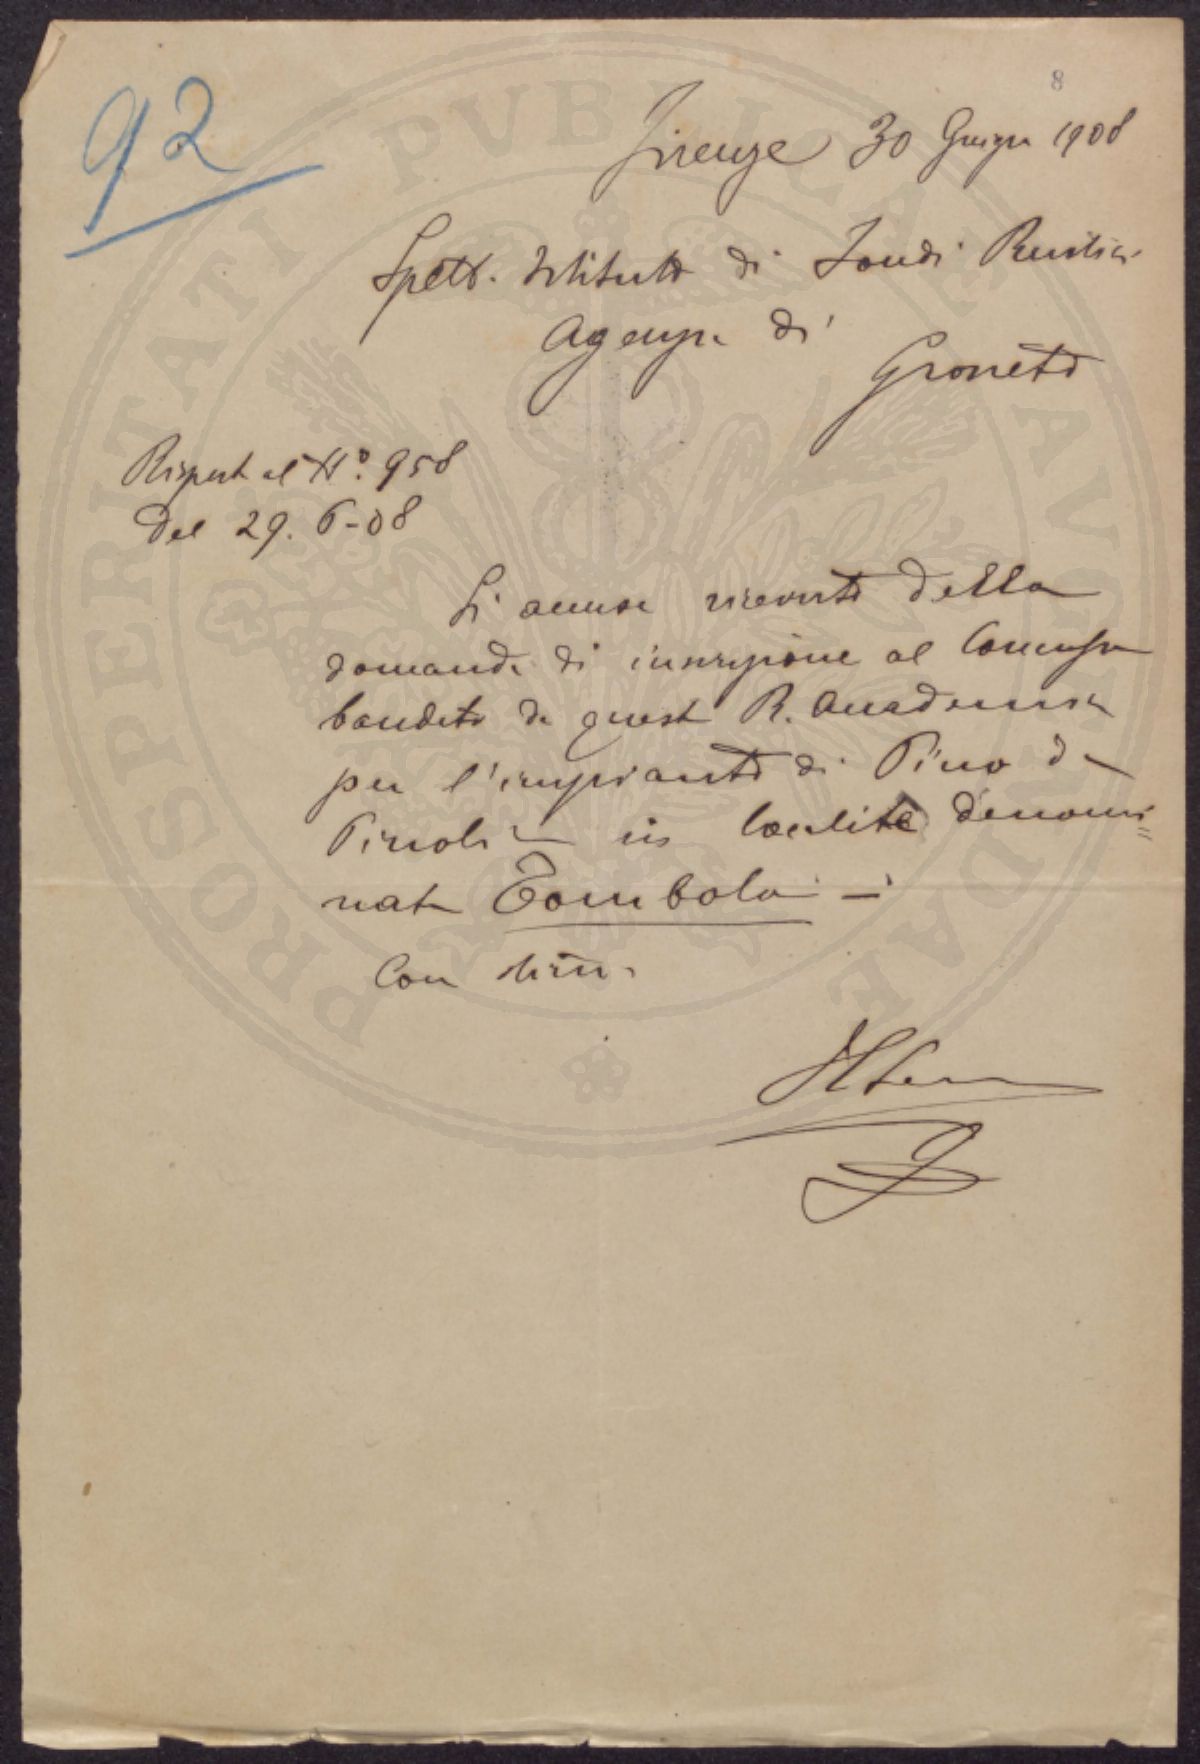 8
92
Firenze 30 Giugno 1908
Spett. Istituto di Fondi Rustici
Agenzia di
Grosseto
Risposta al N.° 958
del 29. 6-08
Si accusa ricevuta della
domanda di inscrizione al Concorso
bandito da questa R. Accademia
per l'impianto di Pino da
Pinoli in località denomi=
nata Tombolo –
Con stima
PROSPERITATI PVBLICAE AVGENDAE